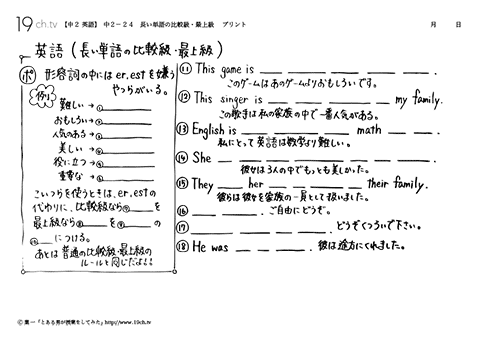 19ch.tv 【中2 英語】 中2−24 長い単語の比較級・最上級 プリント 月 日
英語 (長い単語の比較級・最上級)
ポ 形容詞の中にはer,estを嫌う
やつらがいる。
例
難しい → ①
おもしろい → ②
人気のある → ③
美しい → ④
役に立つ → ⑤
重要な → ⑥
こいつらを使うときは、er,estの
代わりに、比較級なら⑦ を
最上級なら⑧ を⑨ の
⑩ につける。
あとは普通の比較級・最上級の
ルールと同じだよ!!
⑪ This game is
このゲームはあのゲームよりおもしろいです。
⑫ This singer is my family.
この歌手は私の家族の中で一番人気がある。
⑬ English is math .
私にとって英語は数学より難しい。
⑭ She .
彼女は3人の中でもっとも美しかった。
⑮ They her their family.
彼らは彼女を家族の一員として扱いました。
⑯ . ご自由にどうぞ。
⑰ . どうぞくつろいで下さい。
⑱ He was . 彼は途方にくれました。
© 葉一「とある男が授業をしてみた」http://www.19ch.tv